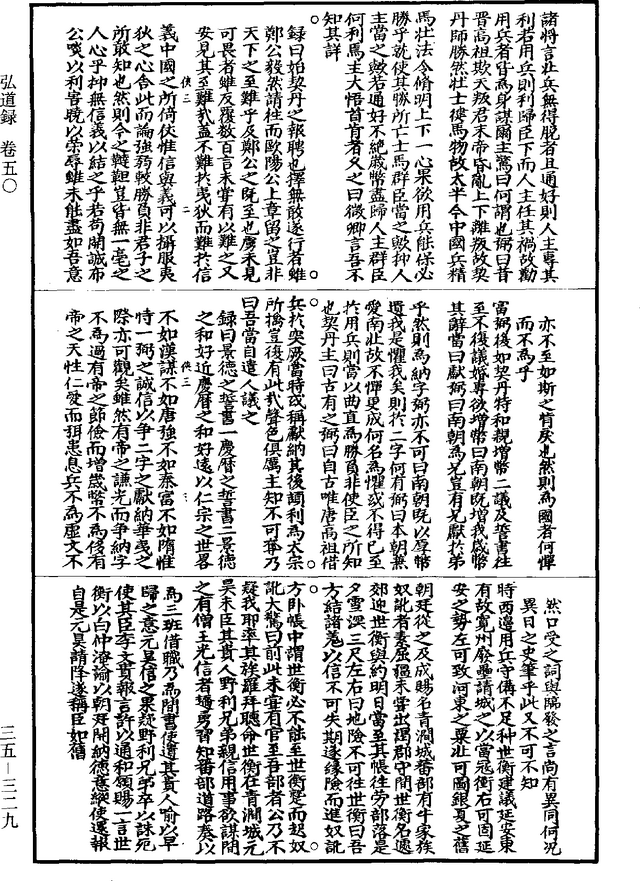 諸將言壯兵無得脫者且通好則人主專其
利若用兵則利歸臣下而人主任其禍故勸
用兵者皆為身謀爾主驚曰何謂也弼曰昔
晉高祖欺天叛君末帝昏亂上下離叛故契
丹師勝然壯士健馬物故太半今中國兵精
馬壯法令脩明上下一心果欲用兵能保必
勝乎就使其勝所亡士馬群臣當之歟抑人
主當之歟若通好不絕歲幣盡歸人主群臣
何利焉主大悟首肯者久之曰微卿言吾不
知其詳
錄曰始契丹之報聘也擇無敢遂行者雖
鄭公毅然請往而歐陽公上章留之豈非
天下之至難乎及鄭公之既至也虜未見
可畏者雖反覆數百言未嘗有以難之又
安見其至難哉蓋不難於夷狄而難於信
俠三 二
義中國之所倚仗惟信與義可以攝服夷
狄之心舍此而論強弱較勝負非君子之
所敢知也然則今之韃靼豈皆無一毫之
人心乎抑無信義以結之乎若苟開誠布
公啖以利害曉以榮辱雖未能盡如吾意
亦不至如斯之惰戾也然則為國者何憚
而不為乎
富弼後如契丹特和親增幣二議及誓書往
至不復議婚專欲增幣曰南朝既增我歲幣
其辭當曰獻弼曰南朝為兄豈有兄獻於弟
乎然則為納字弼亦不可曰南朝既以厚幣
遺我是懼我矣則於二字何有弼曰本朝兼
愛南北故不憚更成何名為懼或不得已至
於用兵則當以曲直為勝負非使臣之所知
也契丹主曰古有之弼曰自古唯唐高祖借
兵於突厥當時或稱獻納其後頡利為太宗
所擒豈復有此哉聲色俱厲主知不可奪乃
曰吾當自遣人議之
錄曰景德之誓書一慶曆之誓書二景德
之和好近慶曆之和好遠以仁宗之世畧
俠三 三
不如漢謀不如唐強不如秦富不如隋惟
恃一弼之誠信以爭二字之獻納華夷之
際亦可觀矣雖然有帝之謙光而爭納字
不為過有帝之節儉而增歲幣不為侈有
帝之天性仁愛而弭患息兵不為虛文不
然口受之詞與隔發之言尚有異同何况
異日之史筆乎此又不可不知
時西邊用兵守備不足种世衡建議延安東
有故寬州廢壘請城之以當寇衝右可固延
安之勢左可致河東之粟北可圖銀夏之舊
朝廷從之及成賜名青澗城蕃部有牛家族
奴訛者素屈強未嘗出謁郡守聞世衡名遽
郊迎世衡與約明日當至其帳往勞部落是
夕雪深三尺左右曰地險不可往世衡曰吾
方結諸羌以信不可失期遂緣險而進奴訛
方卧帳中謂世衡必不能至世衡蹙而起奴
訛大驚曰前此未嘗有官至吾部者公乃不
疑我耶率其族羅拜聽命世衡在青澗城元
昊未臣其貴人野利兄弟親信用事欲謀間
之有僧王光信者趫勇習知蕃部道路奏以
為三班借職乃為間書使遺其貴人喻以早
歸之意元昊信之果疑野利兄弟卒以誅死
使其臣李文貴報言許以通和願賜一言世
衡以白仲淹諭以朝廷開納德意縱使還報
自是元昊請降遂稱臣如舊
弘道録 卷五〇
三五—三二九